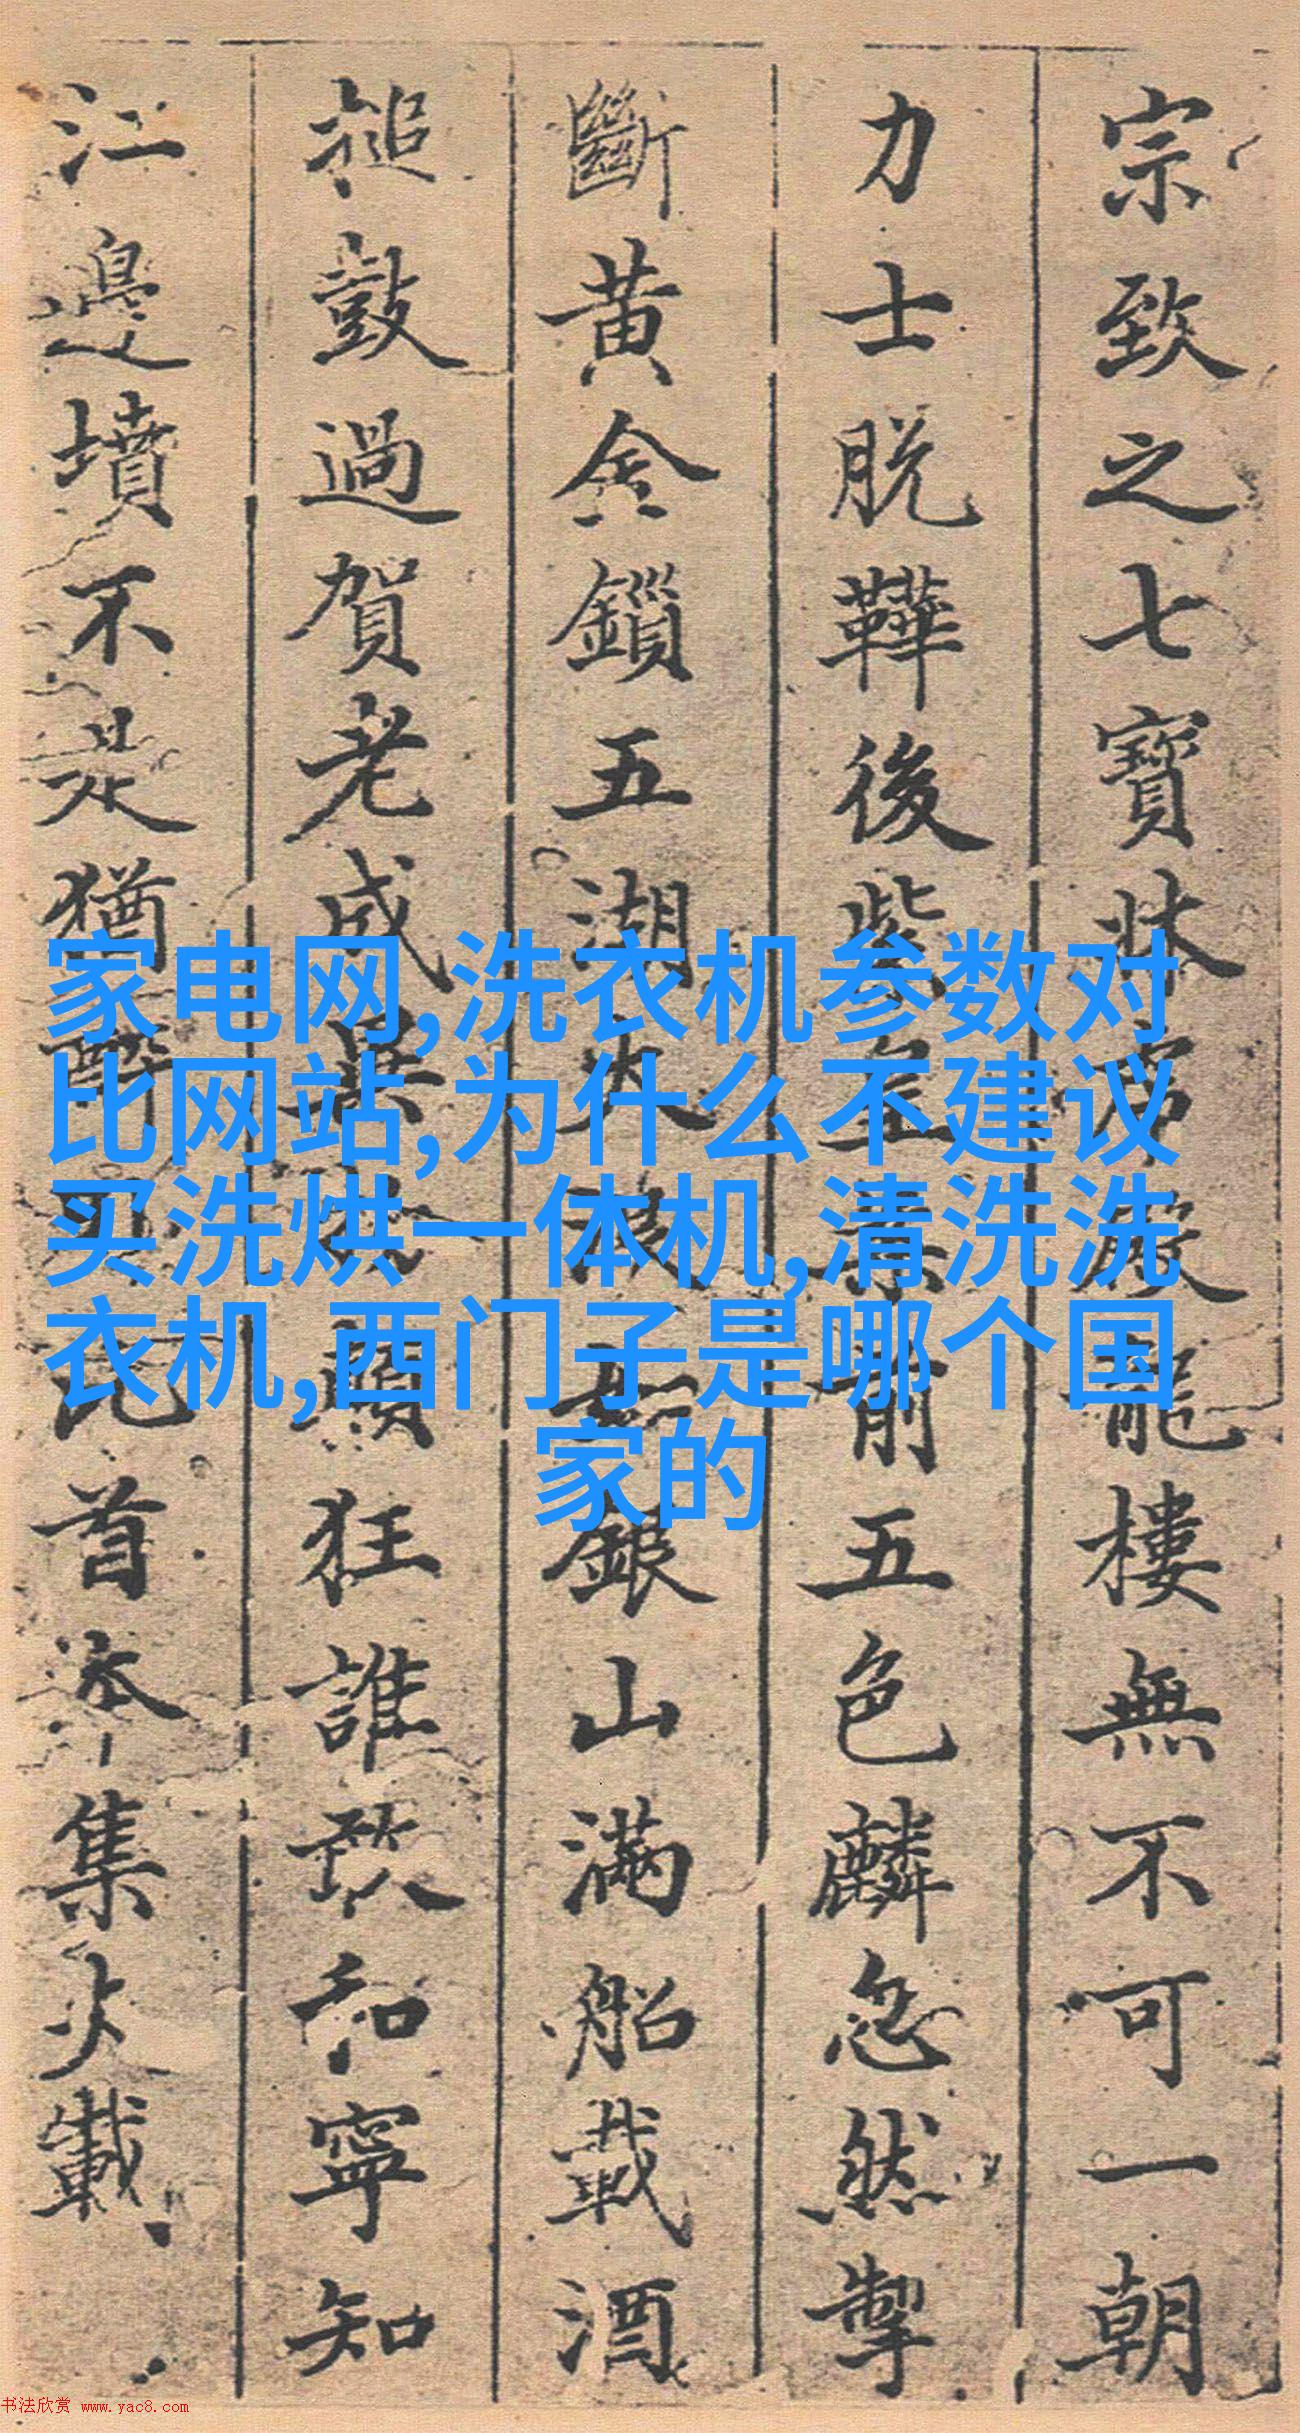 宗致之七寶牀
龍樓無不可一朝
力士脫鞾後
前五色麟忽然掣
斷黃金鎖五湖
銀山滿船載酒
撾鼓過賀老成
狂誰敢和寧知
江邊墳不是猶
首本集火載
家电网,洗衣机参数对
比网站,为什么不建议
买洗烘一体机,清洗洗
衣机,西门子是哪个国
家的
书法欣赏 www.yac8.com